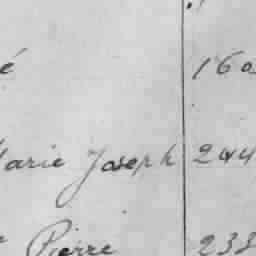 é 160
Marie Joseph 244
Pierre 238